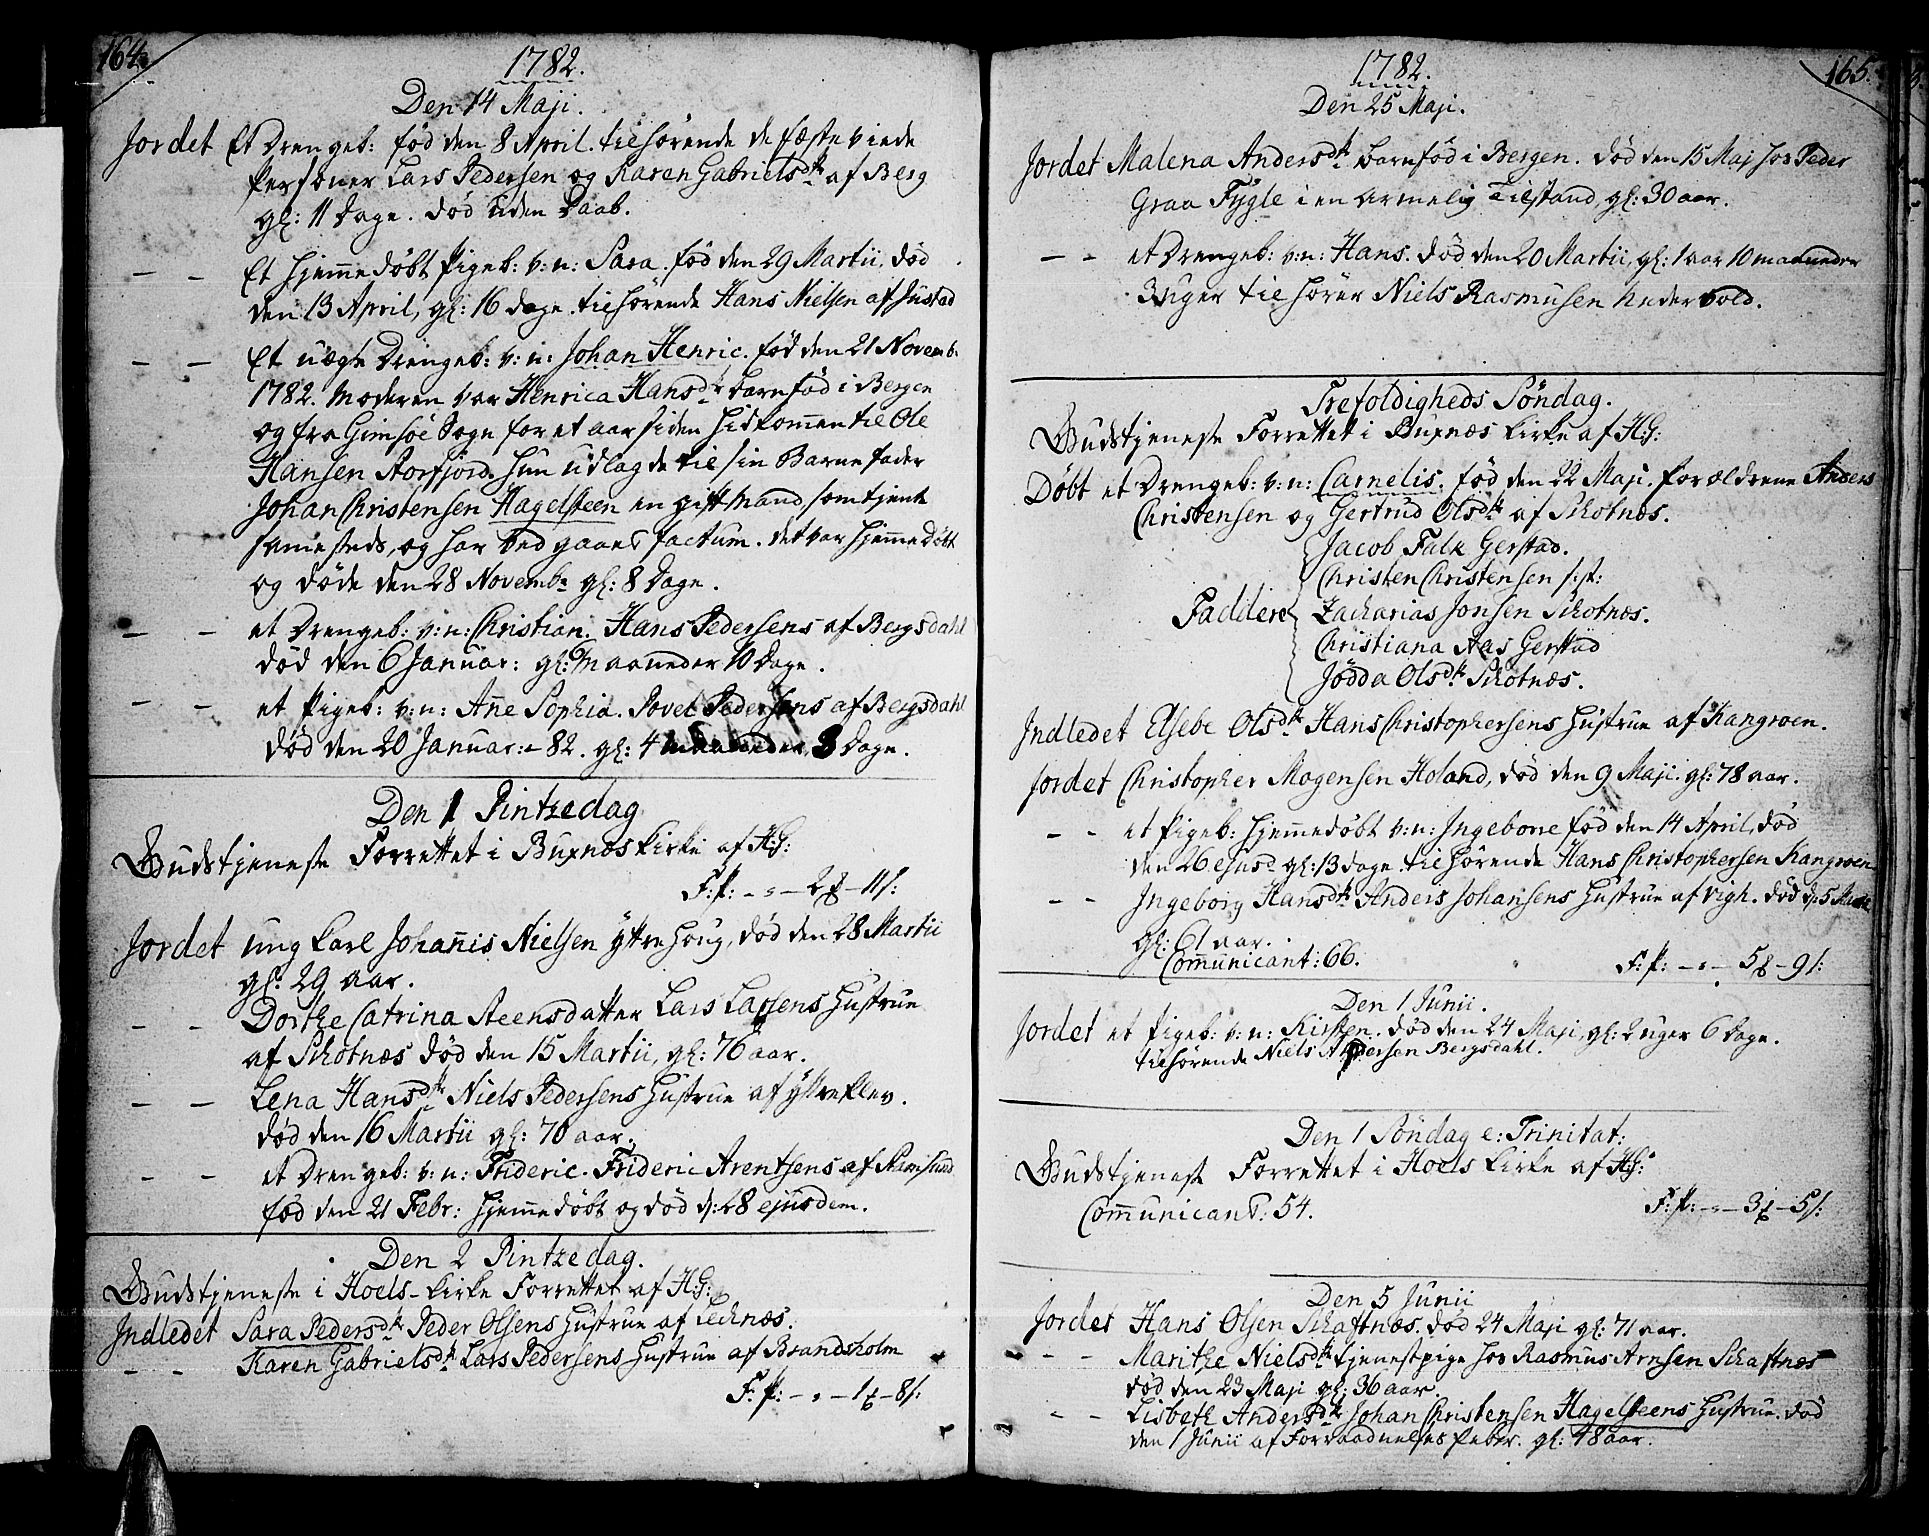 164.
1782.
Den 14 Maji.
Jordet Et Drengeb: fød den 8 April. tilhørende de fæsteviede
Personer Lars Pedersen og Karen Gabrielsdtr af Berg
gl: 11 Dage. død uden Daab.
— — Et hjemmedøbt Pigeb: v: n: Sara. fød den 29 Martii, død
den 13 April, gl: 16 dage. tilhørende Hans Nielsen af Justad
— — Et uægte Drengeb: v: n: Johan Henric. fød den 21 Novemb.
1782. Moderen var Henrica Hansdtr barnfød i Bergen
og fra Gimsøe Sogn for et aar siden hidkommen til Ole
Hansen Storfjord. hun udlagde til sin Barnefader
Johan Christensen Hagelsteen en gift Mand som tjente
sammesteds, og har vedgaaed factum. det var hjemmedøbt
og døde den 28 Novembr gl: 8 Dage.
— — et Drengeb: v: n: Christian. Hans Pedersens af Bergsdahl
død den 6 Januar: gl: maaneder 10 Dage.
— — et Pigeb: v: n: Ane Sophia. Povel Pedersens af Bergsdahl
død den 20 Januar: 82. gl: 4 maaneder, 3 Dage.
Den 1 Pintzedag
Gudstjeneste Forrettet i Buxnæs kirke af H:G:
F: P: — " — 2 — 11 s:
Jordet ung karl Johannis Nielsen Yttrehoug, død den 28 Martii
gl: 29 aar.
— — Dorthe Catrina Steensdatter Lars Larsens hustrue
af Skotnæs død den 15 Martii, gl: 76 aar.
— — Lena Hansdtr Niels Pedersens hustrue af Yttreklev.
død den 16 Martii gl: 70 aar.
— — et Drengeb: v: n: Frideric. Frideric Arentsens af
fød den 21 Febr: hjemmedøbt og død d: 28 ejusdem.
Den 2 Pintzedag.
Gudstjeneste i Hoels-kirke Forrettet af H:G:
Indledet Sara Pedersdtr Peder Olsens hustrue af Lecknæs.
— — Karen Gabrielsdtr Lars Pedersens hustrue af Brandsholm
F: P: — " — 1 — 8 s:
165.
1782.
Den 25 Maji.
Jordet Malena Andersdtr barnfød i Bergen. død den 15 Maj hos Peder
Graa Fygle i en armelig Tilstand, gl: 30 aar.
— — et Drengeb: v: n: Hans. død den 20 Martii, gl: 1 aar 10 maaneder
3 uger tilhører Niels Rasmusen Nedervold.
Trefoldigheds Søndag.
Gudstjeneste Forrettet i Buxnæs kirke af H:G:
Døbt et Drengeb: v: n: Carnelis. fød den 22 Maji. forældrene Anders
Christensen og Gertrud Olsdtr af Skotnæs.
Jacob Falk Gerstad.
Christen Christensen s: st:
Faddere Zacharias Jonsen Skotnæs.
Christiana Aas Gerstad
Jødda Olsdtr Skotnæs.
Indledet Elsebe Olsdtr Hans Christophersens hustrue af Kangroen.
Jordet Christopher Mogensen Holand, død den 9 Maji. gl: 78 aar.
— — et Pigeb: hjemmedøbt v: n: Ingeborre fød den 14 April, død
den 26 ejusd gl: 13 dage. tilhørende Hans Christophersen Kangroen
— — Ingeborg Hansdtr Anders Johansens hustrue af Vigh. død d: 5
gl: 61 aar.
Communicant: 66.
F: P: — " — 5 — 9 s:
Den 1 Junii.
Jordet et Pigeb: v: n: Kirsten. død den 24 Maji, gl: 2 uger 6 dage.
tilhørende Niels Andersen Bergsdahl.
Den 1 Søndag e: Trinitat:
Gudstjeneste Forrettet i Hoels kirke af H:G:
Communicant: 54.
F: P: — " — 3 — 5 s:
Den 5 Junii
Jordet Hans Olsen Skaftnæs. død 24 Maji gl: 71 aar.
— — Marithe Nielsdtr tjenestpige hos Rasmus Arnsen Skaftnæs
død den 23 Maji gl: 36 aar.
— — Lisbeth Andersdtr Johan Christensen Hagelsteens hustrue. død
den 1 Junii af Forraadnelses Feber. gl: 48 aar.